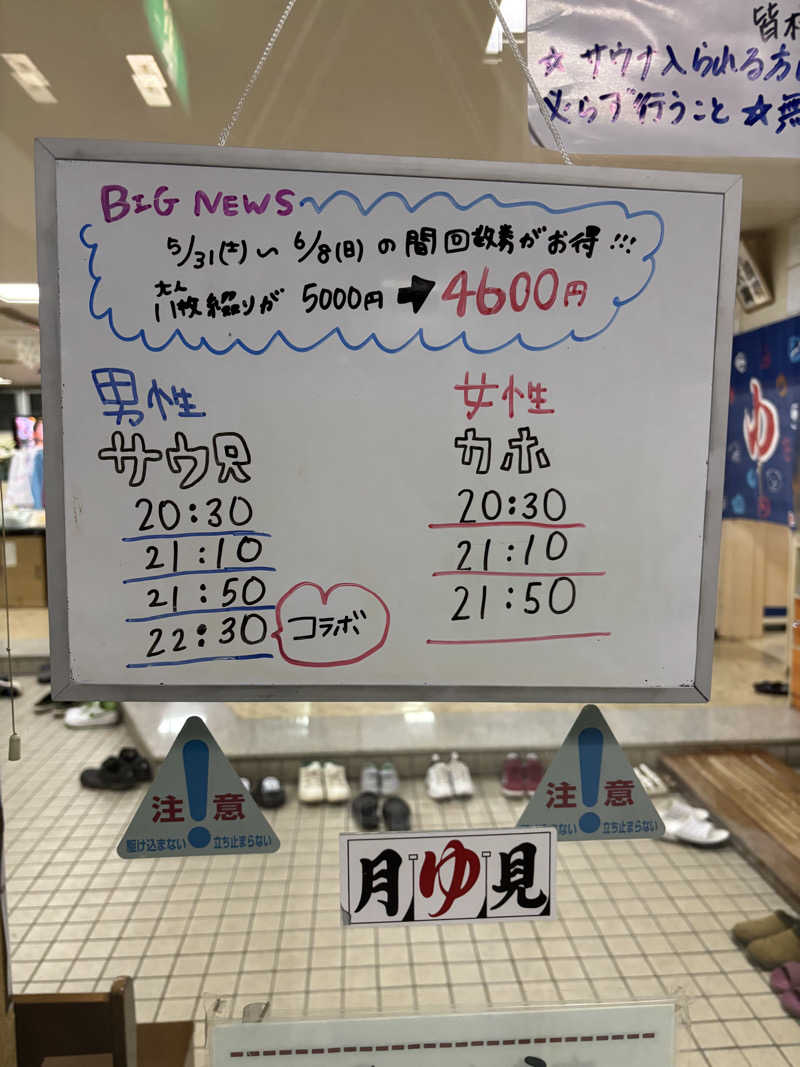 皆
☆サウナ入られる方
必らず行うこと ☆無
BIG NEWS
5/31(土)～6/8(日)の間回数券がお得!!!
大人
11枚綴りが 5000円➡4600円
男性
サウ兄
20:30
21:10
21:50
22:30 コラボ
女性
カホ
20:30
21:10
21:50
ゆ
注!意
駆け込まない 立ち止まらない
注!意
ない 立ち止まらない
月ゆ見